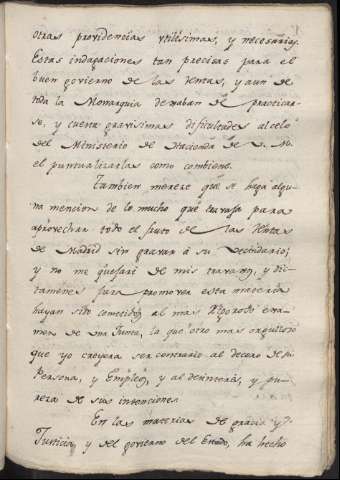 otras providencias utilisimas, y necesarias.
Estas indagaciones tan precisas para el
buen govierno de las Rentas, y aun de
toda la Monarquia dexaban de practicar-
se, y cuesta gravisimas dificultades al celo
del Ministerio de Hacienda de V. M.
el puntualizarlas como combiene.
Tambien merece que se haga algu-
na mencion de lo mucho que travajé para
aprovechar todo el fruto de las Rentas
de Madrid sin gravar á su Vecindario;
y no me quejaré de mis travajos, y dic-
támenes para promover esta materia
hayan sido cometidos al mas rigoroso exa-
men de una Junta, lo que otro mas orgulloso
que yo creyera ser contrario al decoro de su
Persona, y Empleo, y al desinterés, y pu-
reza de sus intenciones.
En las materias de gracia y
Justicia, y del govierno del Estado, ha hecho